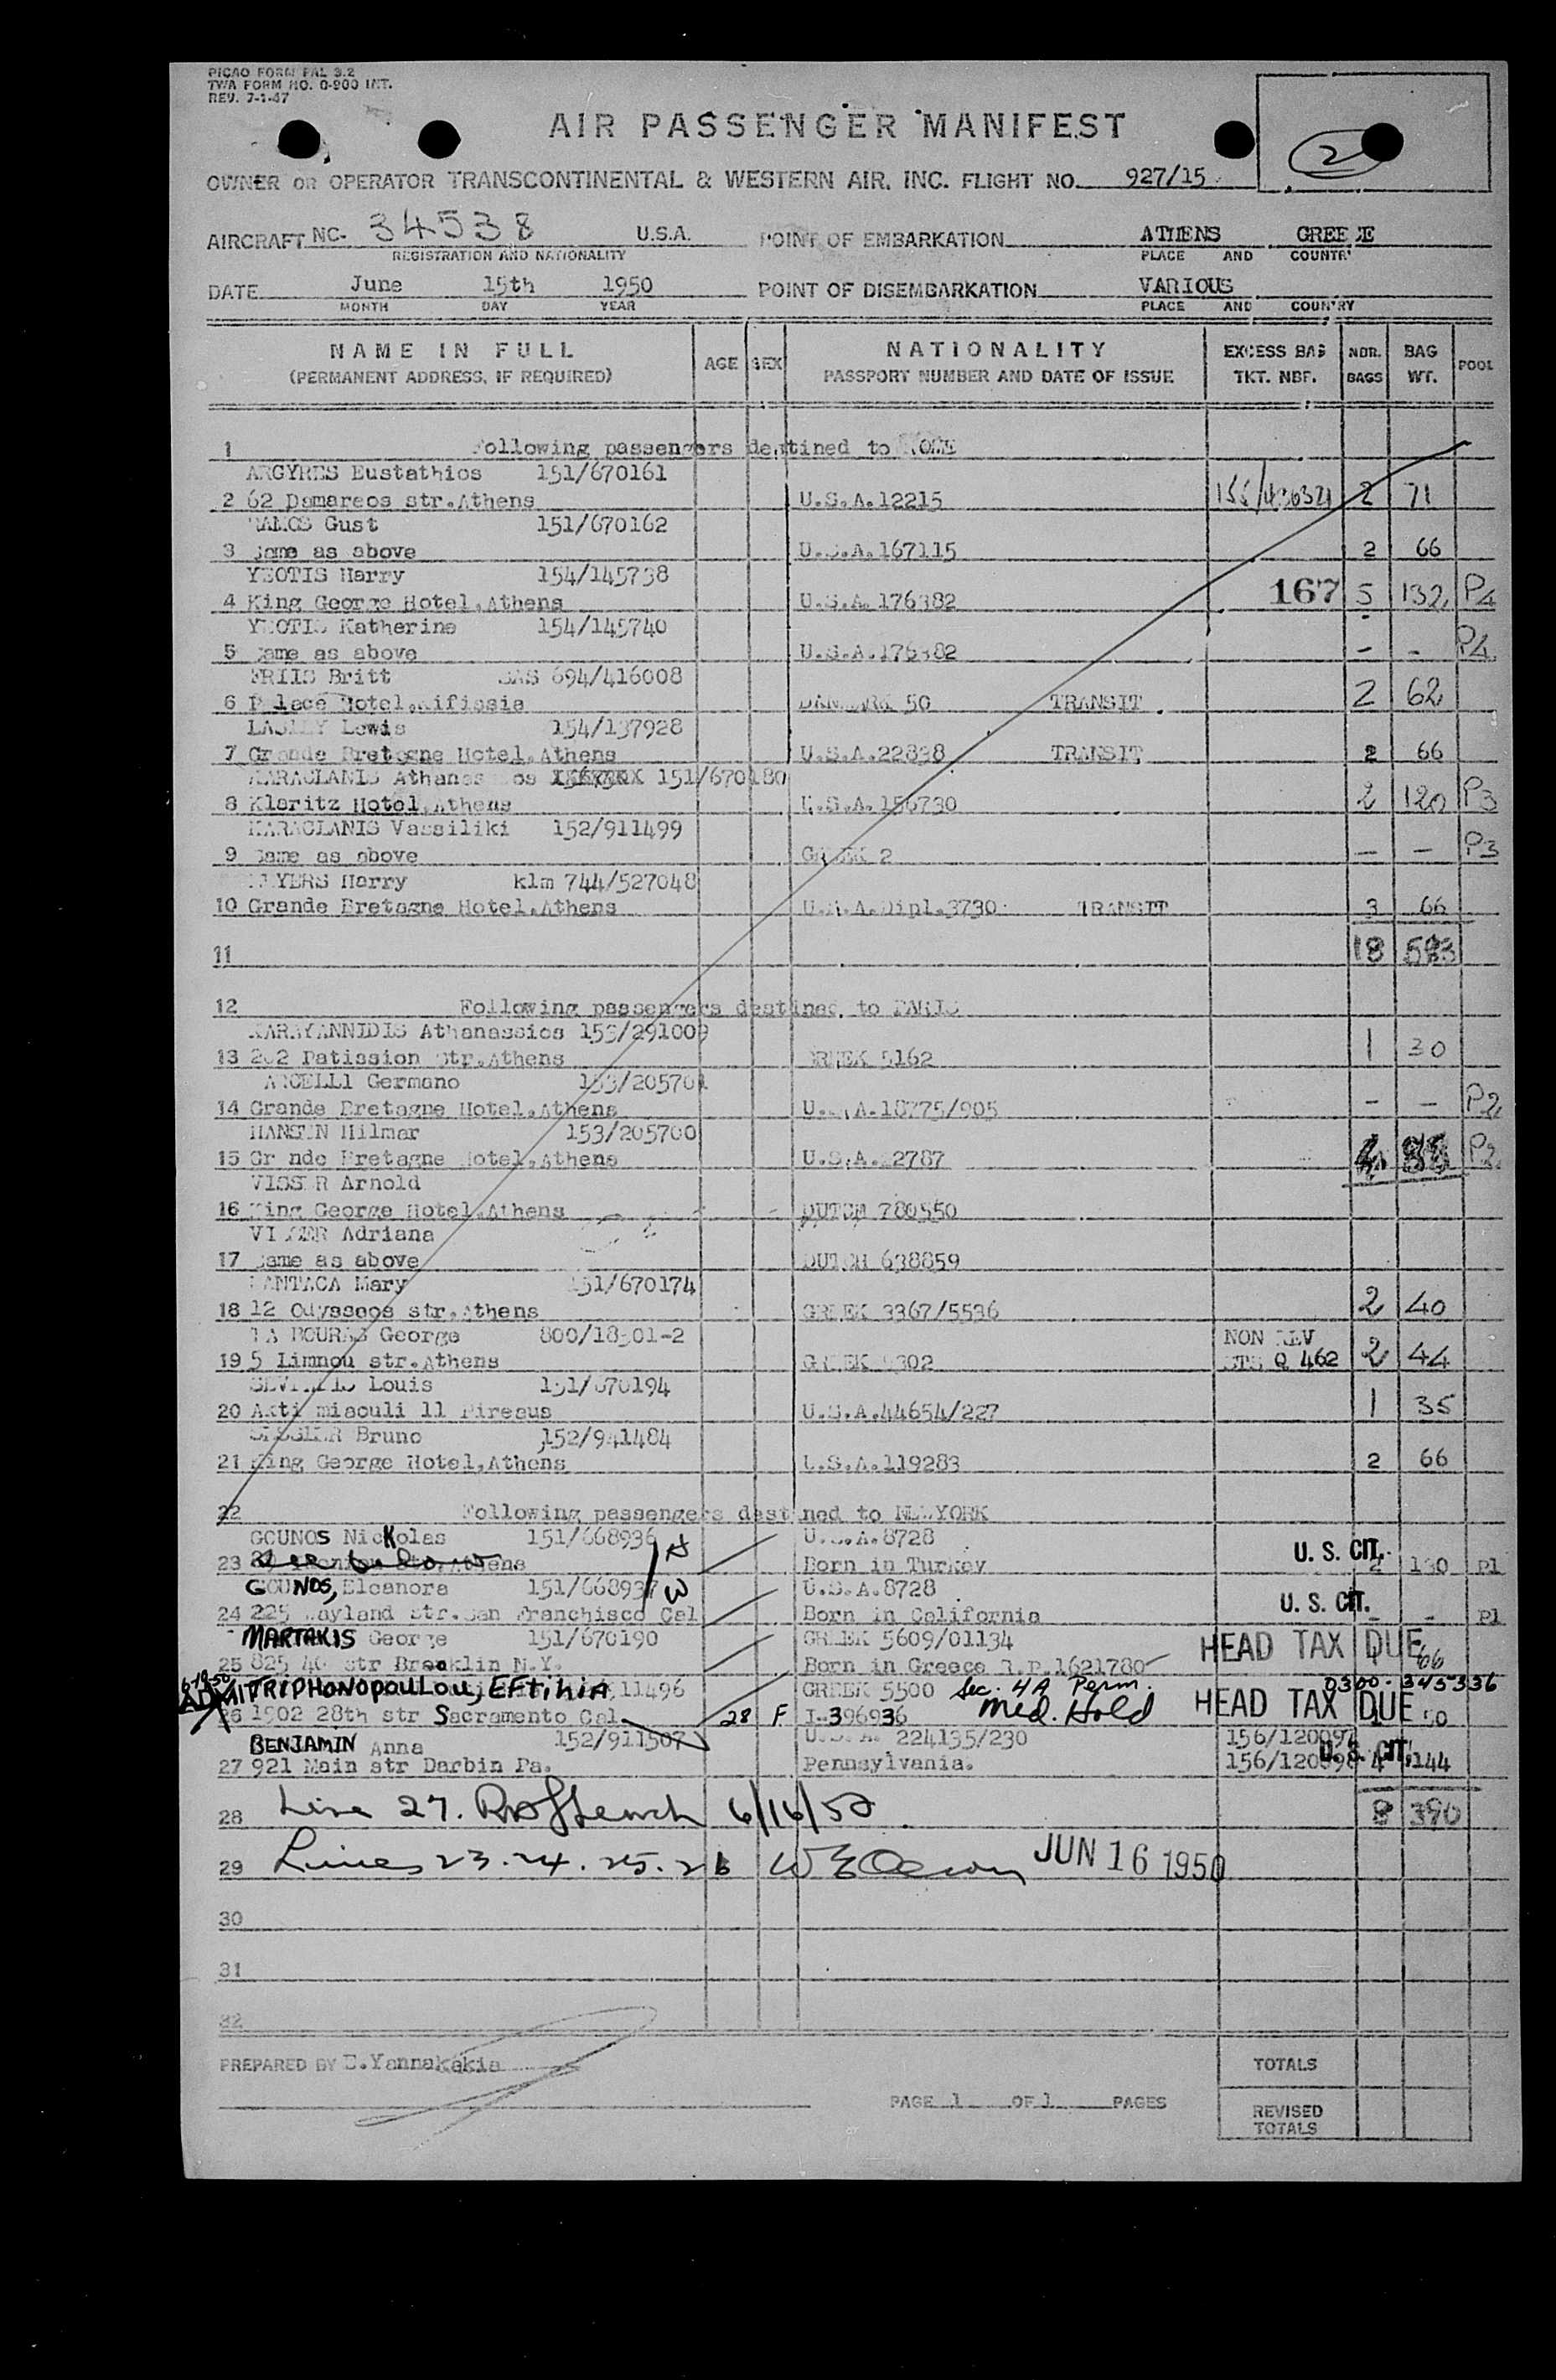 PICAO FORM PAL 3.2
TWA FORM NO. 0-900 INT.
REV. 7-1-47
AIR PASSENGER MANIFEST
2
OWNER OR OPERATOR TRANSCONTINENTAL & WESTERN AIR, INC. FLIGHT NO. 927/15
AIRCRAFT NC- 34538 U.S.A. POINT OF EMBARKATION ATHENS GREECE
REGISTRATION AND NATIONALITY PLACE AND COUNTRY
DATE June 15th 1950 POINT OF DISEMBARKATION VARIOUS
MONTH DAY YEAR PLACE AND COUNTRY
NAME IN FULL AGE SEX NATIONALITY EXCESS BAG NBR. BAG POOL
(PERMANENT ADDRESS, IF REQUIRED) PASSPORT NUMBER AND DATE OF ISSUE TKT. NBR. BAGS WT.
1 Following passengers destined to ROME
ARGYRES Eustathios 151/670161
2 62 Damareos str.Athens U.S.A.12215 2 71
Gust 151/670162
3 Same as above U.S.A.167115 2 66
YEOTIS Harry 154/145738
4 King George Hotel,Athens U.S.A.176382 167 5 132 P4
YEOTIS Katherine 154/145740
5 Same as above U.S.A.176382 - - P4
FRIIS Britt SAS 694/416008
6 Palace Hotel,Kifissia DANMARK 50 TRANSIT 2 62
LASLEY Lewis 154/137928
7 Grande Bretagne Hotel,Athens U.S.A.22838 TRANSIT 2 66
KARAGLANIS 151/670180
8 Klaritz Hotel,Athens U.S.A.156730 2 120 P3
KARAGLANIS Vassiliki 152/911499
9 Same as above GREEK 2 - - P3
MEYERS Harry klm 744/527048
10 Grande Bretagne Hotel,Athens U.S.A.Dipl.3730 TRANSIT 3 66
11 18 583
12 Following passengers destined to PARIS
KARAYANNIDIS Athanassios 153/291009
13 202 Patission Str.Athens GREEK 5162 1 30
Germano 153/205701
14 Grande Bretagne Hotel.Athens U.S.A.18775/905 - - P2
HANSEN Hilmar 153/205700
15 Grande Bretagne Hotel,Athens U.S.A.22787 P2
VISSER Arnold
16 King George Hotel,Athens DUTCH 780550
VISSER Adriana
17 Same as above DUTCH 638859
Mary 151/670174
18 12 Odysseos str.Athens GREEK 3367/5536 2 40
George 800/18501-2 NON REV
19 5 Limnou str.Athens GREEK 462 2 44
Louis 151/670194
20 Akti miaouli 11 Pireaus U.S.A.44654/227 1 35
Bruno 152/941484
21 King George Hotel,Athens U.S.A.119283 2 66
22 Following passengers destined to NEWYORK
GOUNOS Nickolas 151/668936 H U.S.A.8728
23 see below Athens Born in Turkey U. S. CIT. 2 130 P1
GOUNOS, Eleanora 151/668937 W U.S.A.8728
24 225 Wayland Str.San Franchisco Cal Born in California U. S. CIT. - - P1
MARTAKIS George 151/670190 GREEK 5609/01134 HEAD TAX DUE
25 825 40 str Brooklin N.Y. Born in Greece R.P.1621780 66
6-19-50 ADMIT TRIPHONOPOULOU, EFTIHIA 11496 GREEK 5500 Sec. 4A Perm. 0300-345336
26 1502 28th str Sacramento Cal. 28 F I-396936 Med. Hold HEAD TAX DUE 50
BENJAMIN Anna 152/911507 U.S.A. 224135/230 156/120097
27 921 Main str Darbin Pa. Pennsylvania. 156/120098 U. S. CIT. 4 144
28 Line 27. 6/16/50 8 390
29 Lines 23.24.25.26 JUN 16 1950
30
31
32
PREPARED BY E.Yannakakis TOTALS
PAGE 1 OF 1 PAGES REVISED
TOTALS